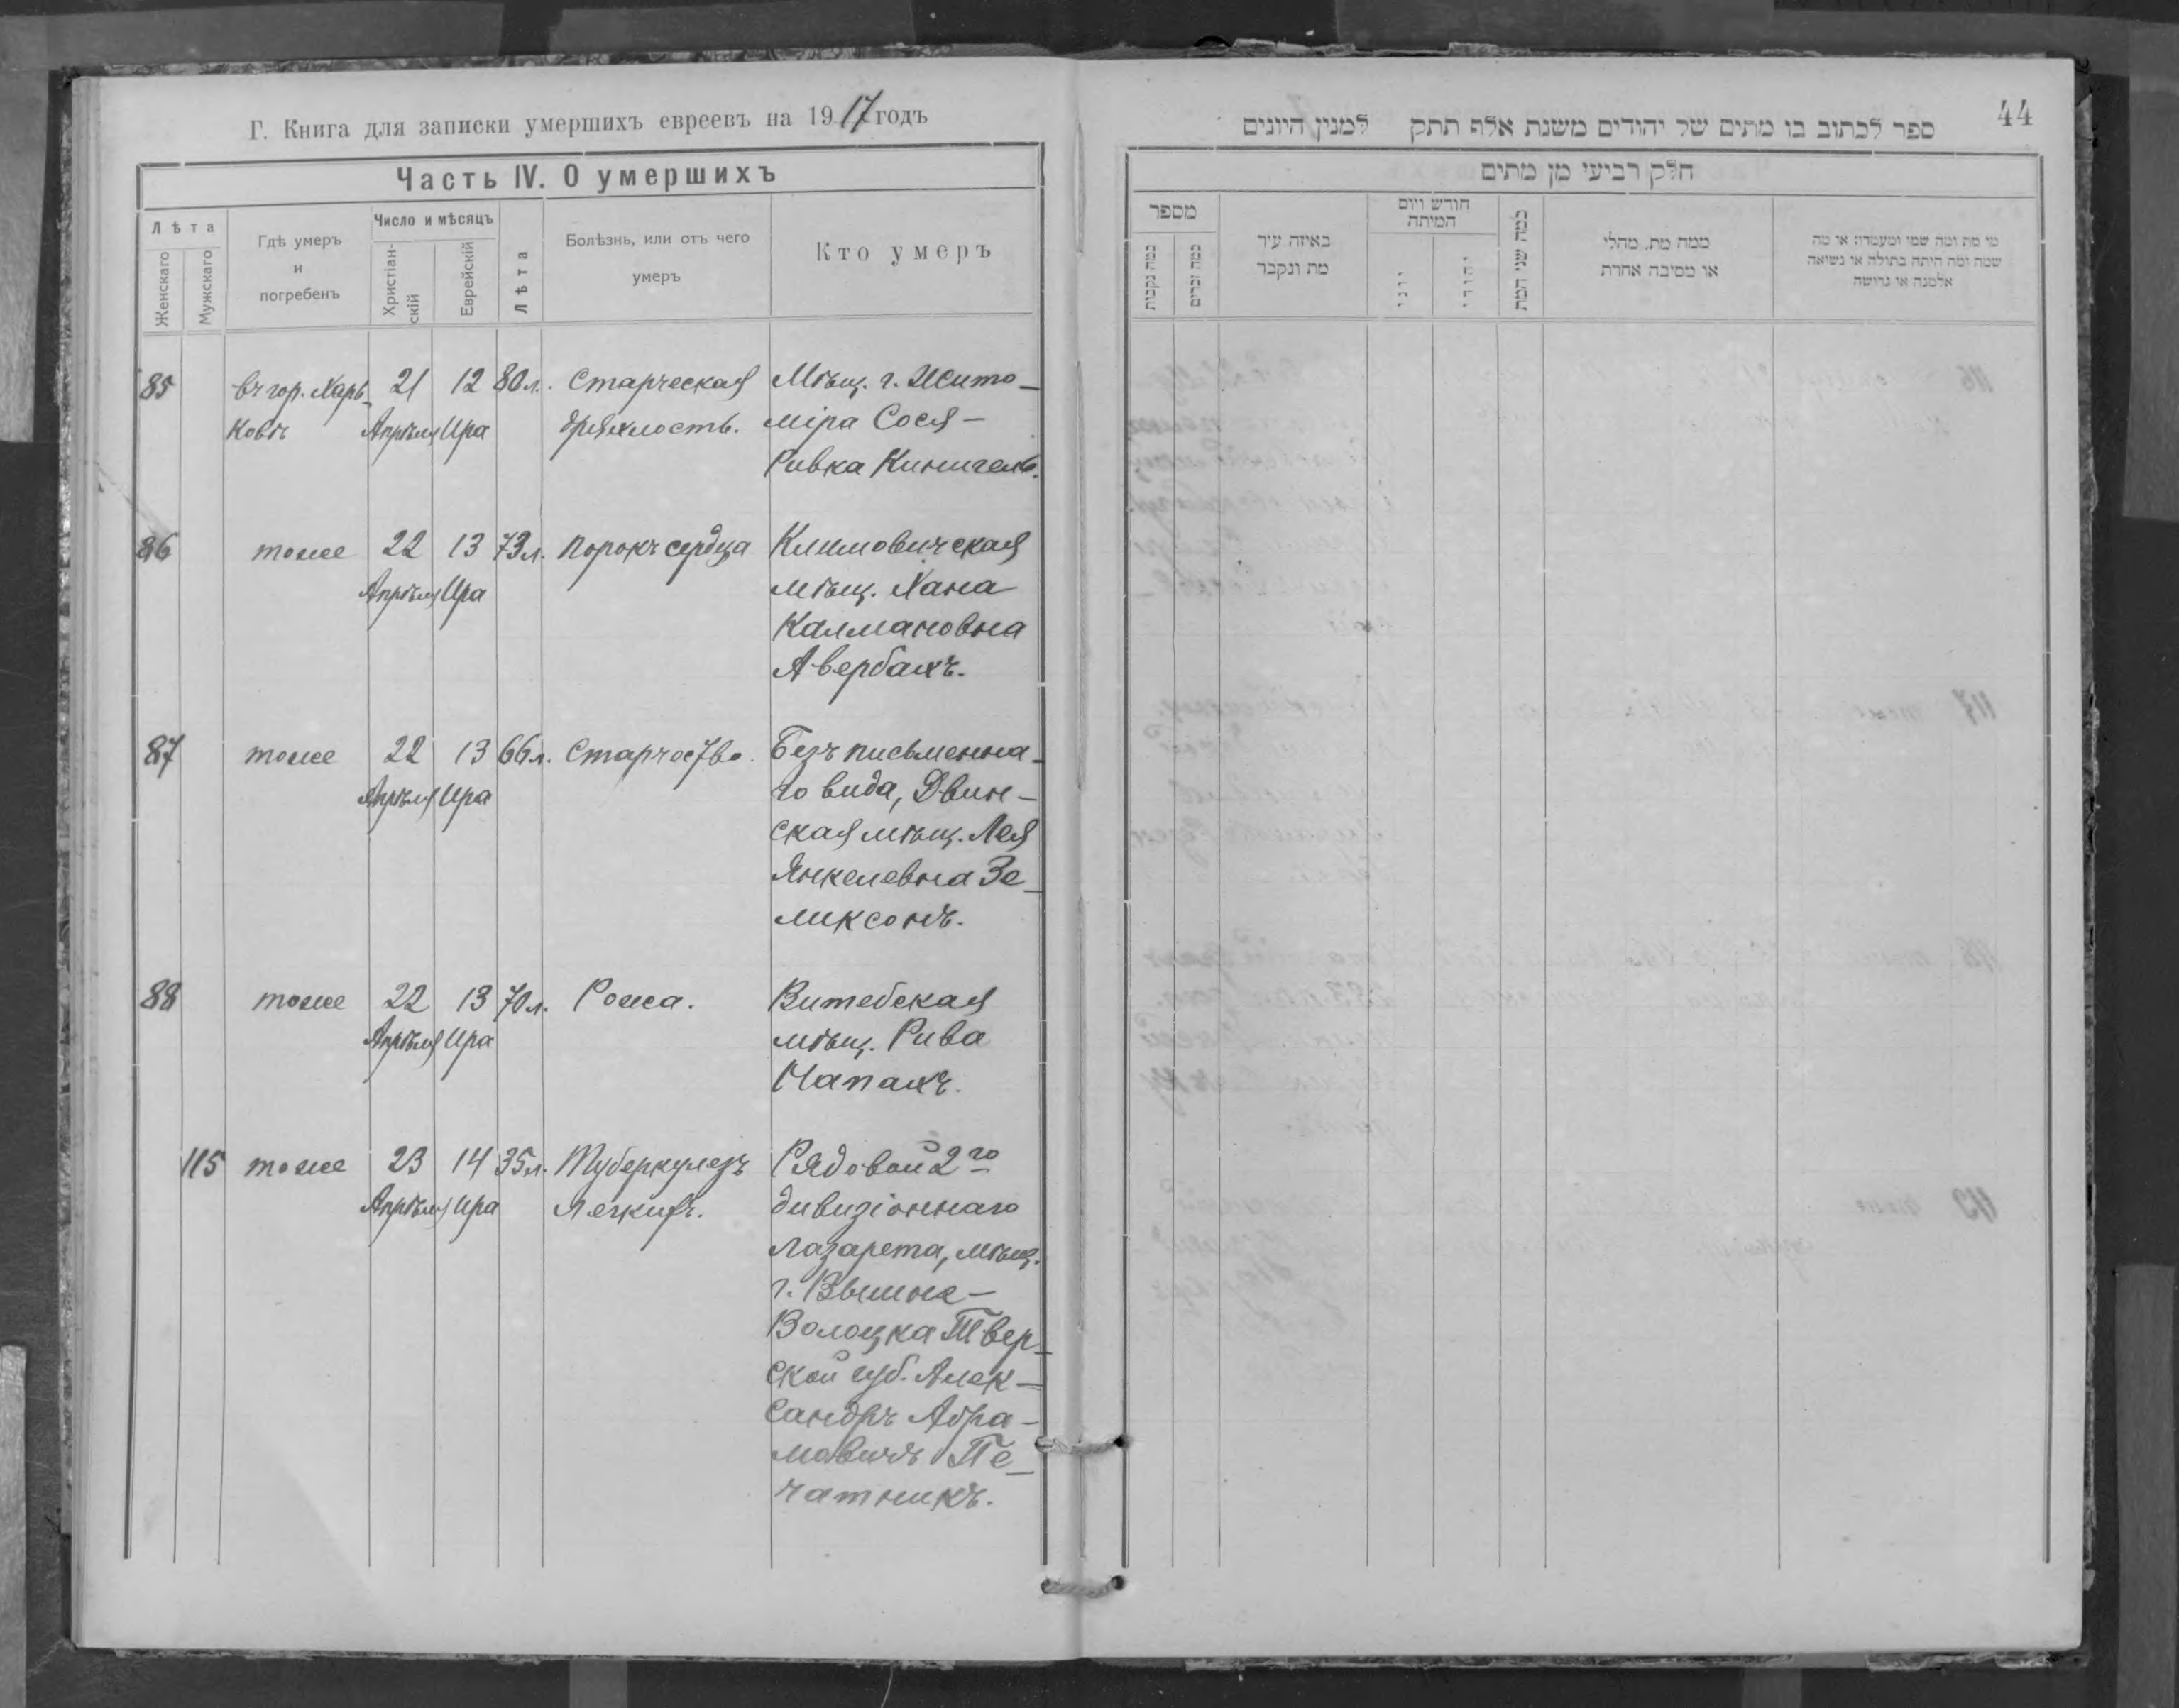 Г. Книга для записки умершихъ евреевъ на 1917 годъ
Часть IV. О умершихъ
Лѣта
Женскаго
Мужскаго
Гдѣ умеръ
и
погребенъ
Число и мѣсяцъ
Христіан-
скій
Еврейскій
Лѣта
Болѣзнь, или отъ чего
умеръ
Кто умеръ
85 въ гор. Харь- 21 12 80 л. Старческая Мѣщ. г. Жито-
ковѣ Апрѣля Ира дряхлость. міра Сося-
Ривка
86 тоже 22 13 73 л. Порокъ сердца Климовичская
Апрѣля Ира мѣщ. Хана
Калмановна
Авербахъ.
87 тоже 22 13 66 л. Старчество. Безъ письменна-
Апрѣля Ира го вида, Двин-
ская мѣщ. Лея
Янкелевна Зе-
ликсонъ.
88 тоже 22 13 70 л. Рожа. Витебская
Апрѣля Ира мѣщ. Рива
Чапахъ.
115 тоже 23 14 35 л. Туберкулезъ Рядовой 2го
Апрѣля Ира Легкихъ. дивизіоннаго
Лазарета, мѣщ.
г. Вышне-
Волоцка Твер-
ской губ. Алек-
сандръ Абра-
мовичъ Пе-
чатникъ.
44
ספר לכתוב בו מתים של יהודים משנת אלף תתק למנין היונים
חלק רביעי מן מתים
מספר
כמה נקבות
כמה זכרים
באיזה עיר
מת ונקבר
חודש ויום
המיתה
יוני
יהודי
כמה שני המת
ממה מת, מחלי
או מסיבה אחרת
מי מת ומה שמו ומעמדו: או מה
שמה ומה היתה בתולה או נשואה
אלמנה או גרושה